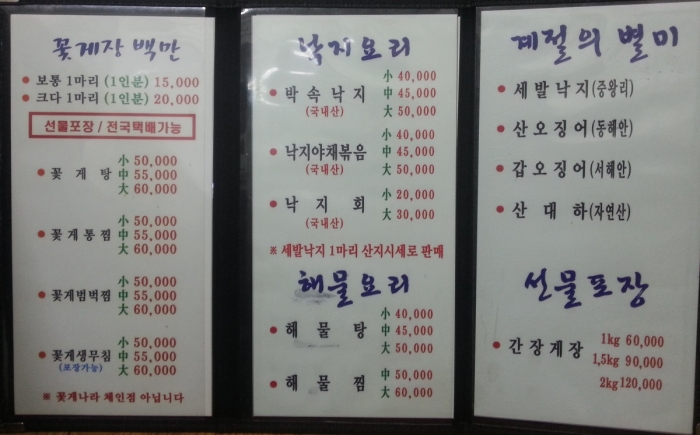 꽃게장 백만
보통 1마리 (1인분) 15,000
크다 1마리 (1인분) 20,000
선물포장 / 전국택배가능
小 50,000
꽃게탕 中 55,000
大 60,000
小 50,000
꽃게통찜 中 55,000
大 60,000
小 50,000
꽃게범벅찜 中 55,000
大 60,000
小 50,000
꽃게생무침 中 55,000
(포장가능) 大 60,000
※ 꽃게나라 체인점 아닙니다
낙지요리
小 40,000
박속낙지 中 45,000
(국내산) 大 50,000
小 40,000
낙지야채볶음 中 45,000
(국내산) 大 50,000
낙지회 小 20,000
(국내산) 大 30,000
※ 세발낙지 1마리 산지시세로 판매
해물요리
小 40,000
해물탕 中 45,000
大 50,000
해물찜 中 50,000
大 60,000
계절의 별미
세발낙지(중왕리)
산오징어(동해안)
갑오징어(서해안)
산대하(자연산)
선물포장
간장게장 1kg 60,000
1,5kg 90,000
2kg 120,000